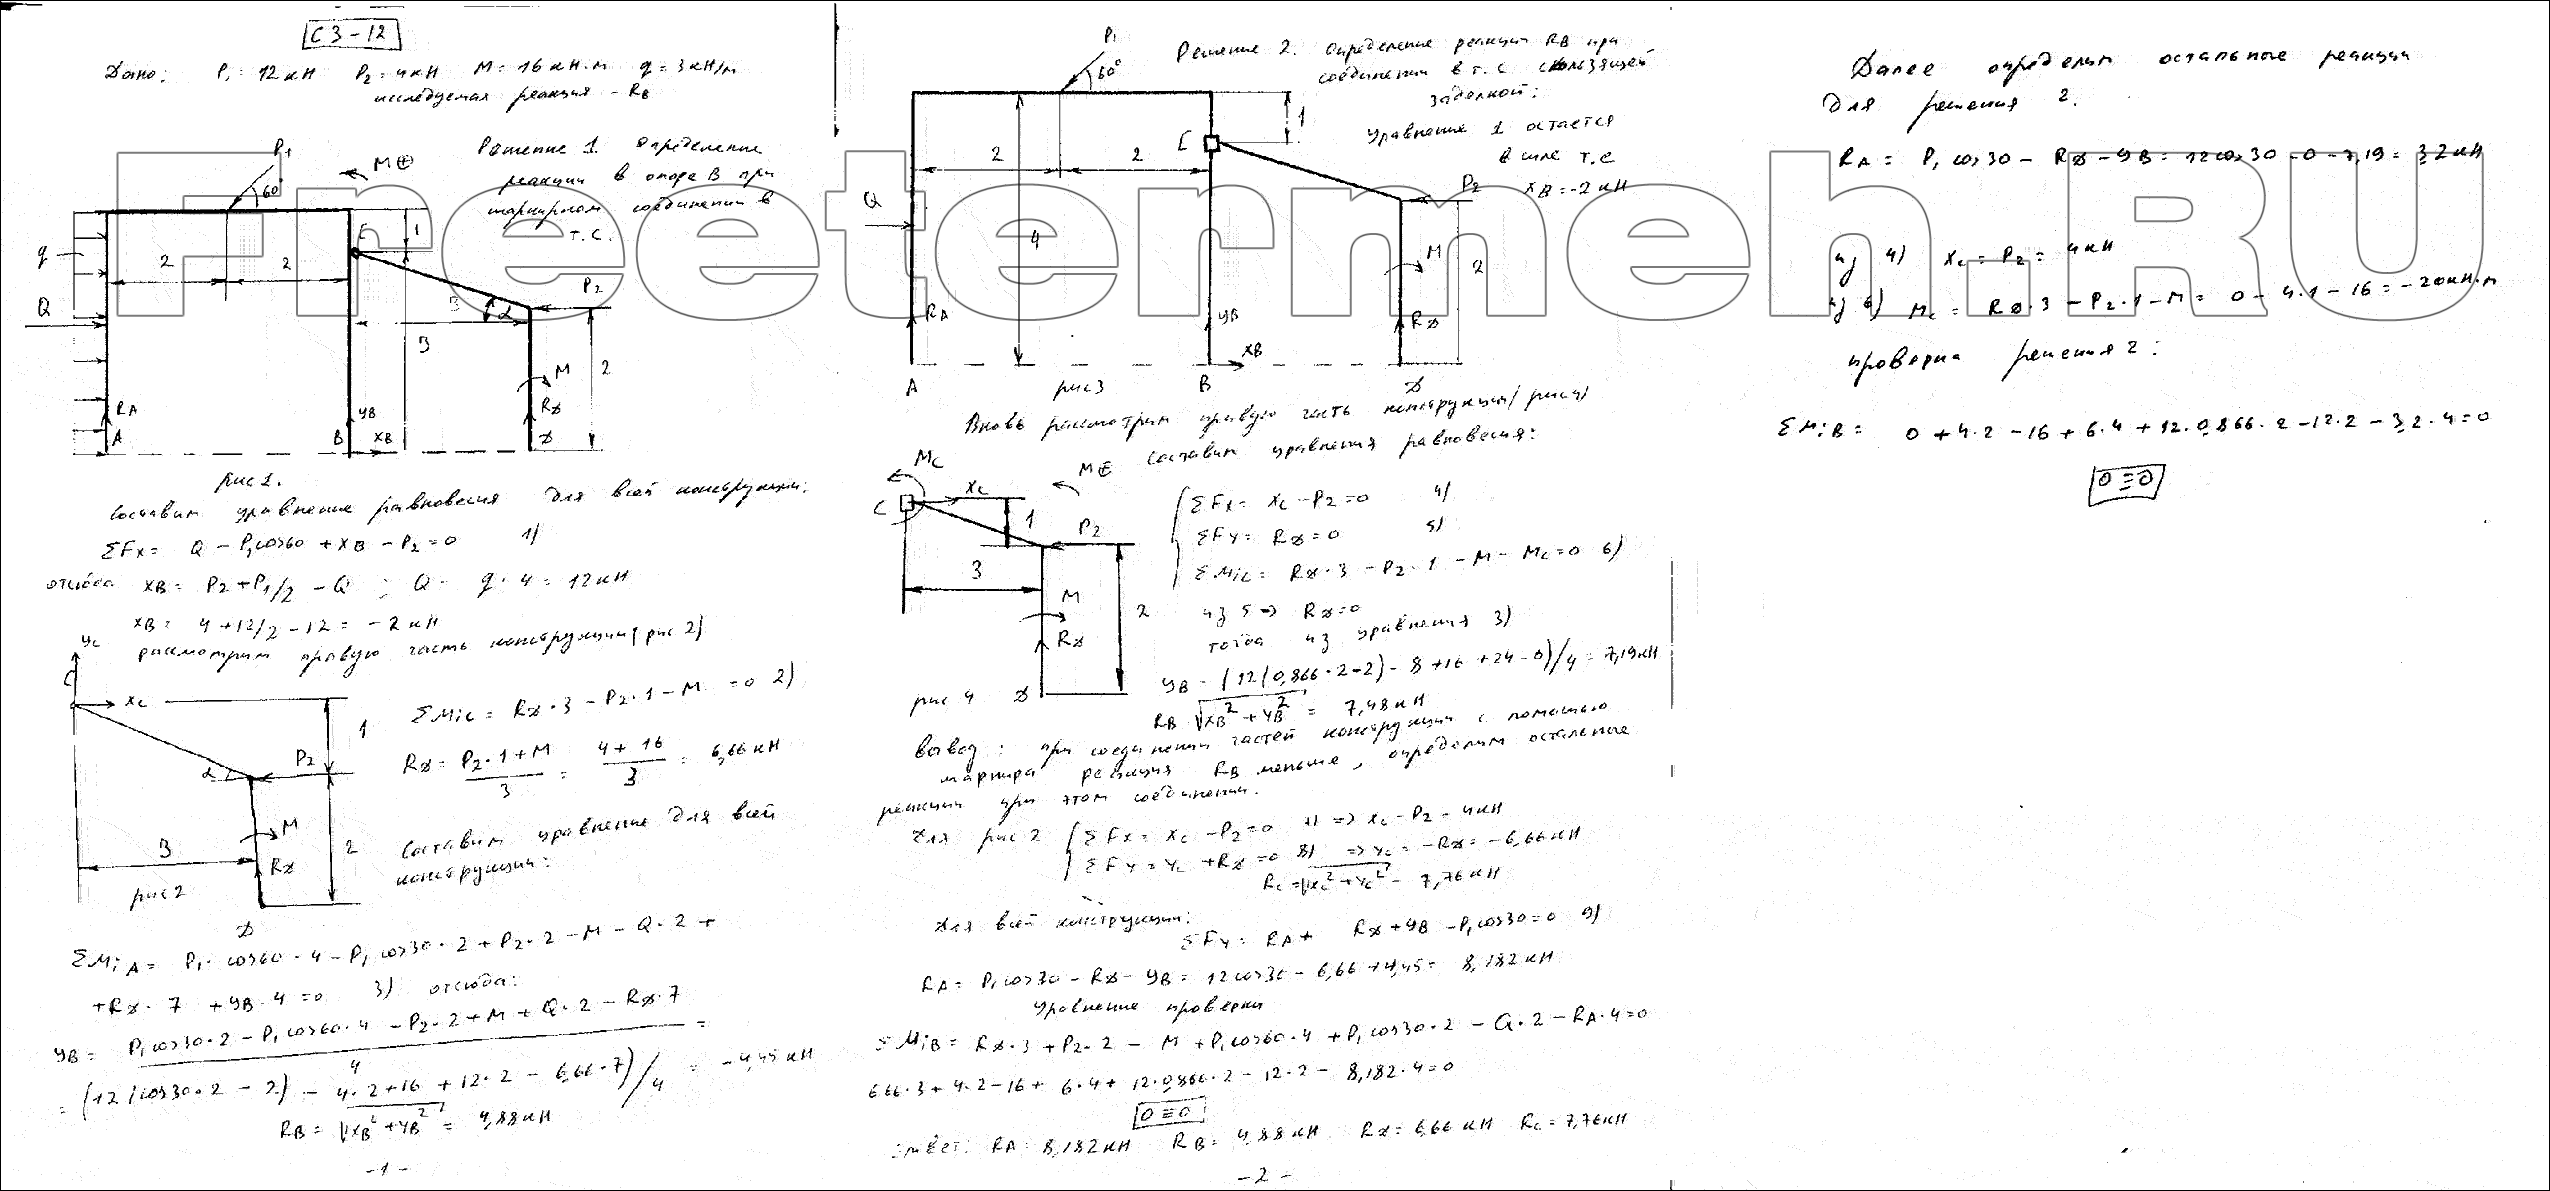 С3-12
Дано: P₁=12кН P₂=4кН M=16кН·м q=3кН/м
исследуемая реакция - RB
Решение 1. Определение
реакции в опоре В при
шарнирном соединении в
т.С.
P₁
60°
M⊕
C
1
q
2
2
Q
3
α
P₂
3
M
2
RA
YB
RД
A
B
XB
Д
рис 1.
Составим уравнение равновесия для всей конструкции:
ΣFx= Q - P₁cos60 + XB - P₂=0 1)
отсюда XB= P₂+P₁/2 - Q ; Q= q·4=12кН
XB= 4+12/2-12= -2кН
рассмотрим правую часть конструкции (рис 2)
YC
C
XC
1
ΣMiC= RД·3 - P₂·1 - M =0 2)
RД= P₂·1+M / 3 = 4+16 / 3 = 6,66кН
P₂
α
M
3
2
RД
рис 2
Д
Составим уравнение для всей
конструкции:
ΣMiA= P₁·cos60·4 - P₁cos30·2 + P₂·2 - M - Q·2 +
+RД·7 +YB·4=0 3) отсюда:
YB= P₁cos30·2 - P₁cos60·4 - P₂·2 + M + Q·2 - RД·7 / 4 =
= (12(cos30·2 - 2) - 4·2+16 +12·2 - 6,66·7)/4 = -4,45кН
RB= √XB²+YB² = 4,88кН
-1-
P₁
60°
Решение 2. Определение реакции RB при
соединении в т.С скользящей
заделкой:
Уравнение 1 остается
в силе т.е
XB=-2кН
C
1
2
2
Q
4
P₂
M
2
RA
YB
RД
XB
A
рис3
B
Д
Вновь рассмотрим правую часть конструкции (рис4)
Составим уравнения равновесия:
MC
M⊕
XC
C
1
P₂
3
M
2
RД
рис 4
Д
ΣFx= XC - P₂=0 4)
ΣFy= RД=0 5)
ΣMiC= RД·3 - P₂·1 - M - MC=0 6)
из 5 => RД=0
тогда из уравнения 3)
YB= (12(0,866·2-2) - 8 +16 +24-0)/4=7,19кН
RB √XB²+YB² = 7,48кН
Вывод: при соединении частей конструкции с помощью
шарнира реакция RB меньше, определим остальные
реакции при этом соединении.
Для рис 2 ΣFx= XC - P₂=0 7) => XC - P₂=4кН
ΣFy= YC +RД=0 8) => YC= -RД= -6,66кН
RC=√XC²+YC² - 7,76кН
Для всей конструкции:
ΣFy= RA+ RД+YB -P₁cos30=0 9)
RA= P₁cos30 - RД - YB= 12cos30 - 6,66 +4,45= 8,182кН
Уравнение проверки
ΣMiB= RД·3 +P₂·2 - M +P₁cos60·4 +P₁cos30·2 - Q·2 - RA·4=0
6,66·3+4·2-16+ 6·4+ 12·0,866·2 - 12·2 - 8,182·4=0
0≡0
Ответ: RA=8,182кН RB=4,88кН RД=6,66кН RC=7,76кН
-2-
Далее определим остальные реакции
для решения 2.
RA= P₁cos30 - RД - YB= 12cos30 -0 -7,19= 3,2кН
из 4) XC= P₂= 4кН
из 6) MC= RД·3 - P₂·1 - M= 0 - 4·1 - 16= -20кН·м
проверка решения 2:
ΣMiB= 0 +4·2 -16 +6·4 +12·0,866·2 -12·2 -3,2·4=0
0≡0
Freetermeh.RU